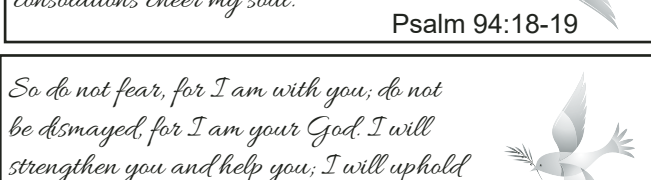 consolations cheer my soul.
Psalm 94:18-19
So do not fear, for I am with you; do not
be dismayed, for I am your God. I will
strengthen you and help you; I will uphold